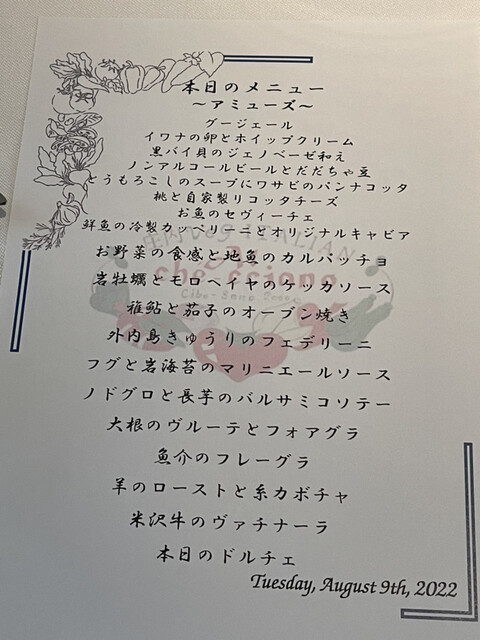 本日のメニュー
~アミューズ~
グージェール
イワナの卵とホイップクリーム
黒バイ貝のジェノベーゼ和え
ノンアルコールビールとだだちゃ豆
とうもろこしのスープにワサビのパンナコッタ
桃と自家製リコッタチーズ
お魚のセヴィーチェ
鮮魚の冷製カッペリーニとオリジナルキャビア
お野菜の食感と地魚のカルパッチョ
岩牡蠣とモロヘイヤのケッカソース
稚鮎と茄子のオーブン焼き
外内島きゅうりのフェデリーニ
フグと岩海苔のマリニエールソース
ノドグロと長芋のバルサミコソテー
大根のヴルーテとフォアグラ
魚介のフレーグラ
羊のローストと糸カボチャ
米沢牛のヴァチナーラ
本日のドルチェ
Tuesday, August 9th, 2022